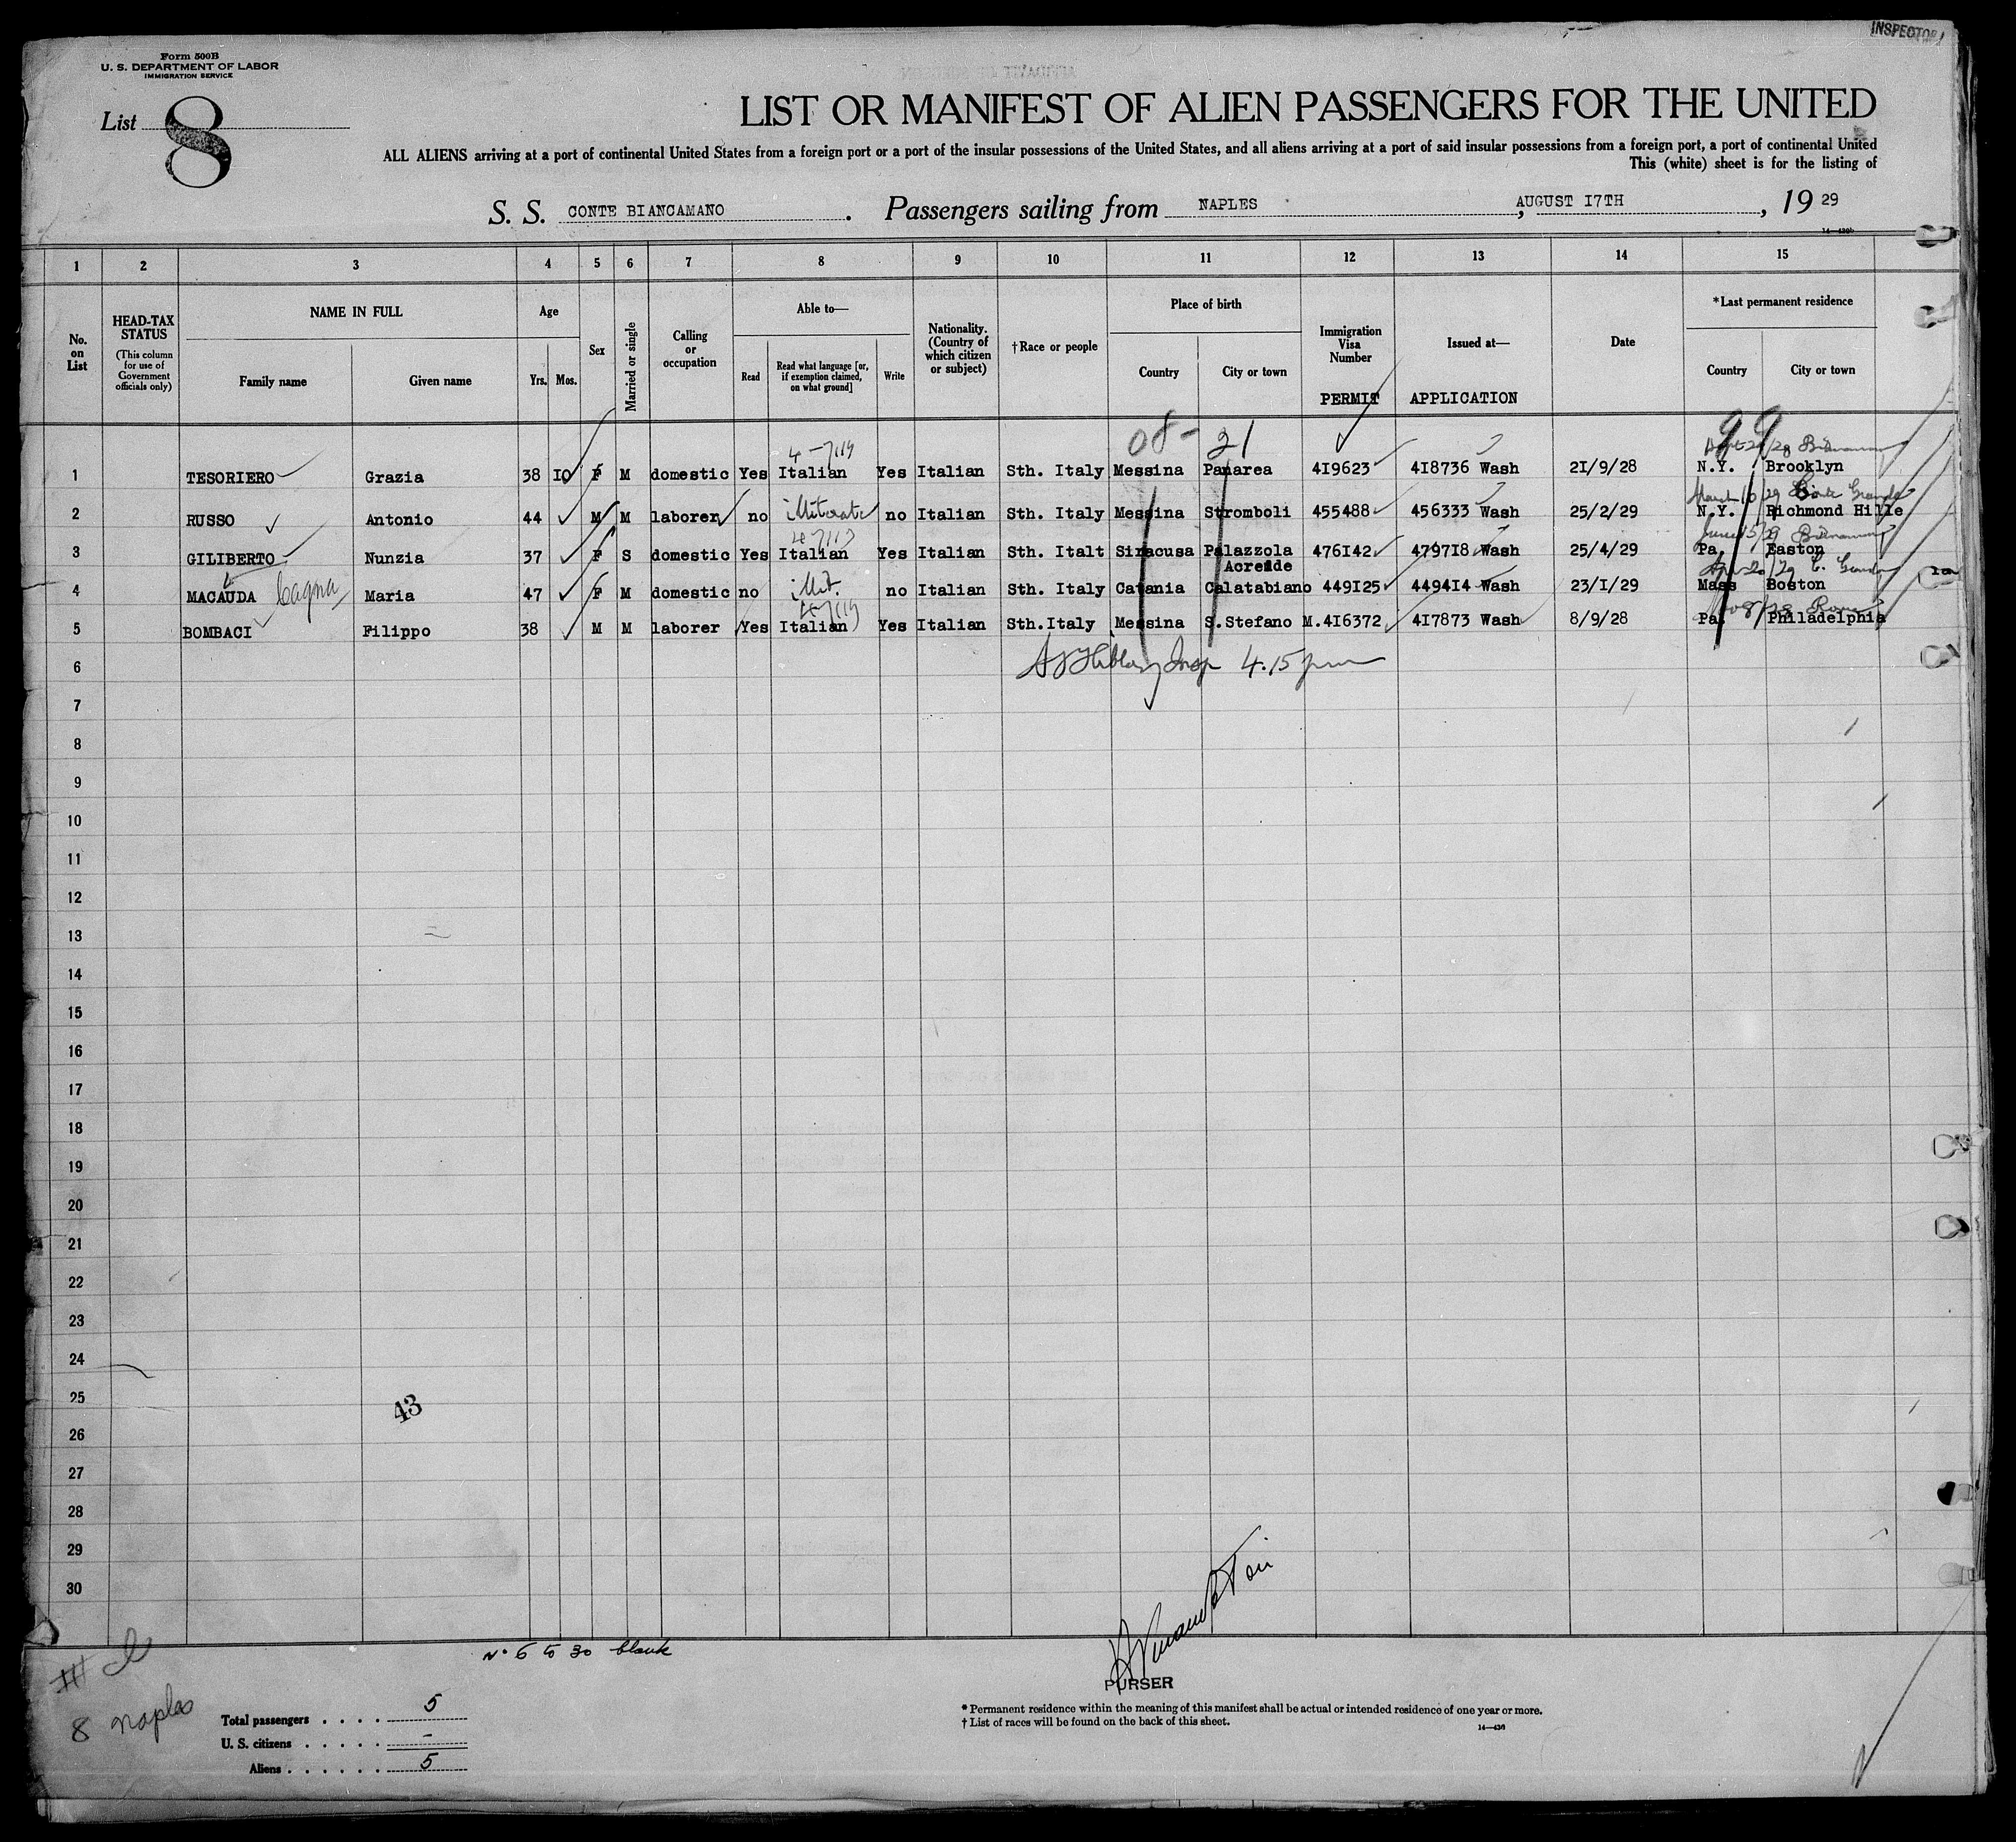 INSPECTOR
Form 500B
U. S. DEPARTMENT OF LABOR
IMMIGRATION SERVICE
List 8
LIST OR MANIFEST OF ALIEN PASSENGERS FOR THE UNITED
ALL ALIENS arriving at a port of continental United States from a foreign port or a port of the insular possessions of the United States, and all aliens arriving at a port of said insular possessions from a foreign port, a port of continental United
This (white) sheet is for the listing of
S. S. CONTE BIANCAMANO. Passengers sailing from NAPLES, AUGUST I7TH, 19 29
1 2 3 4 5 6 7 8 9 10 11 12 13 14 15
No. on List
HEAD-TAX STATUS
(This column for use of Government officials only)
NAME IN FULL
Family name Given name
Age
Yrs. Mos.
Sex
Married or single
Calling or occupation
Able to—
Read
Read what language [or, if exemption claimed, on what ground]
Write
Nationality. (Country of which citizen or subject)
†Race or people
Place of birth
Country City or town
Immigration Visa Number
PERMIT
Issued at—
APPLICATION
Date
*Last permanent residence
Country City or town
08- 21 99
1 TESORIERO Grazia 38 IO F M domestic Yes Italian Yes Italian Sth. Italy Messina Panarea 4I9623 4I8736 Wash 2I/9/28 N.Y. Brooklyn
2 RUSSO Antonio 44 M M laborer no illiterate no Italian Sth. Italy Messina Stromboli 455488 456333 Wash 25/2/29 N.Y. Richmond Hille
3 GILIBERTO Nunzia 37 F S domestic Yes Italian Yes Italian Sth. Italt Siracusa Palazzola Acreide 476I42 4797I8 Wash 25/4/29 Pa. Easton
4 MACAUDA Cagna Maria 47 F M domestic no illit. no Italian Sth. Italy Catania Calatabiano 449I25 4494I4 Wash 23/I/29 Mass Boston
5 BOMBACI Filippo 38 M M laborer Yes Italian Yes Italian Sth.Italy Messina S.Stefano M.4I6372 4I7873 Wash 8/9/28 Pa. Philadelphia
6 4.15 pm
7
8
9
10
11
12
13
14
15
16
17
18
19
20
21
22
23
24
25
43
26
27
28
29
30
No 6 to 30 blank
8 Naples
PURSER
Total passengers . . . . 5
U. S. citizens . . . . . -
Aliens . . . . . . 5
*Permanent residence within the meaning of this manifest shall be actual or intended residence of one year or more.
†List of races will be found on the back of this sheet.
14—430